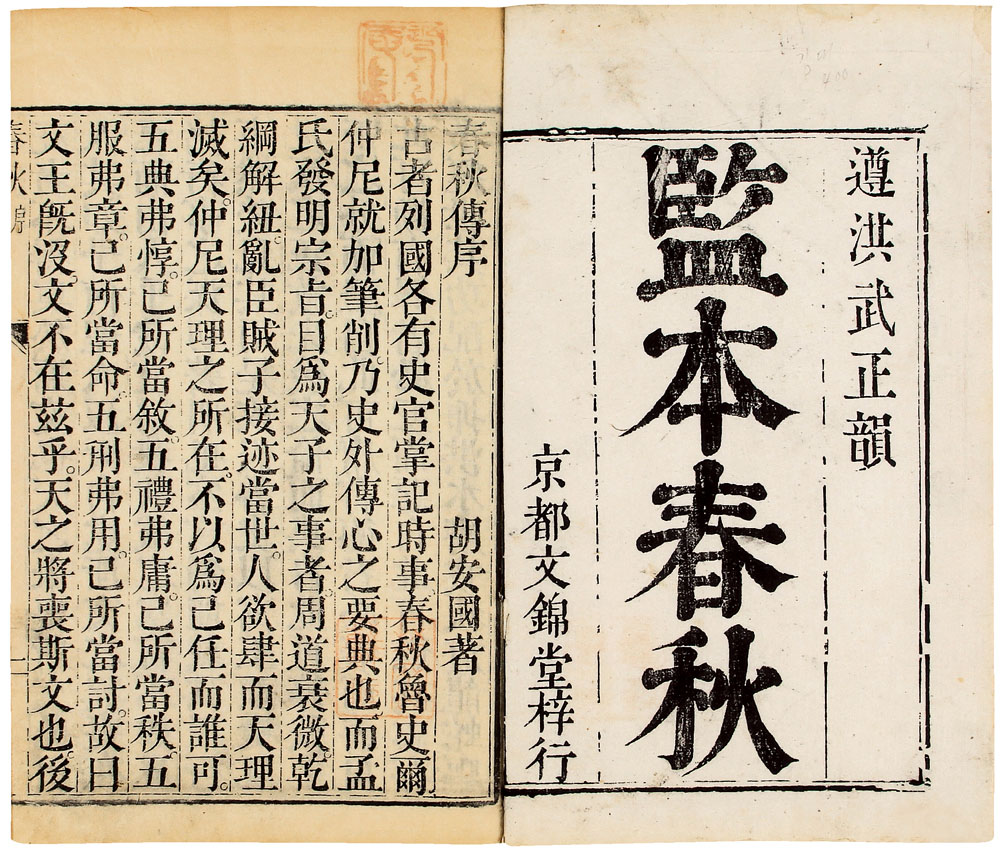 遵洪武正韻
監本春秋
京都文錦堂梓行
春秋傳序
胡安國著
古者列國各有史官掌記時事春秋魯史爾
仲尼就加筆削乃史外傳心之要典也而孟
氏發明宗旨目爲天子之事者周道衰微乾
綱解紐亂臣賊子接迹當世人欲肆而天理
滅矣仲尼天理之所在不以爲己任而誰可
五典弗惇己所當敘五禮弗庸己所當秩五
服弗章己所當命五刑弗用己所當討故曰
文王旣沒文不在茲乎天之將喪斯文也後